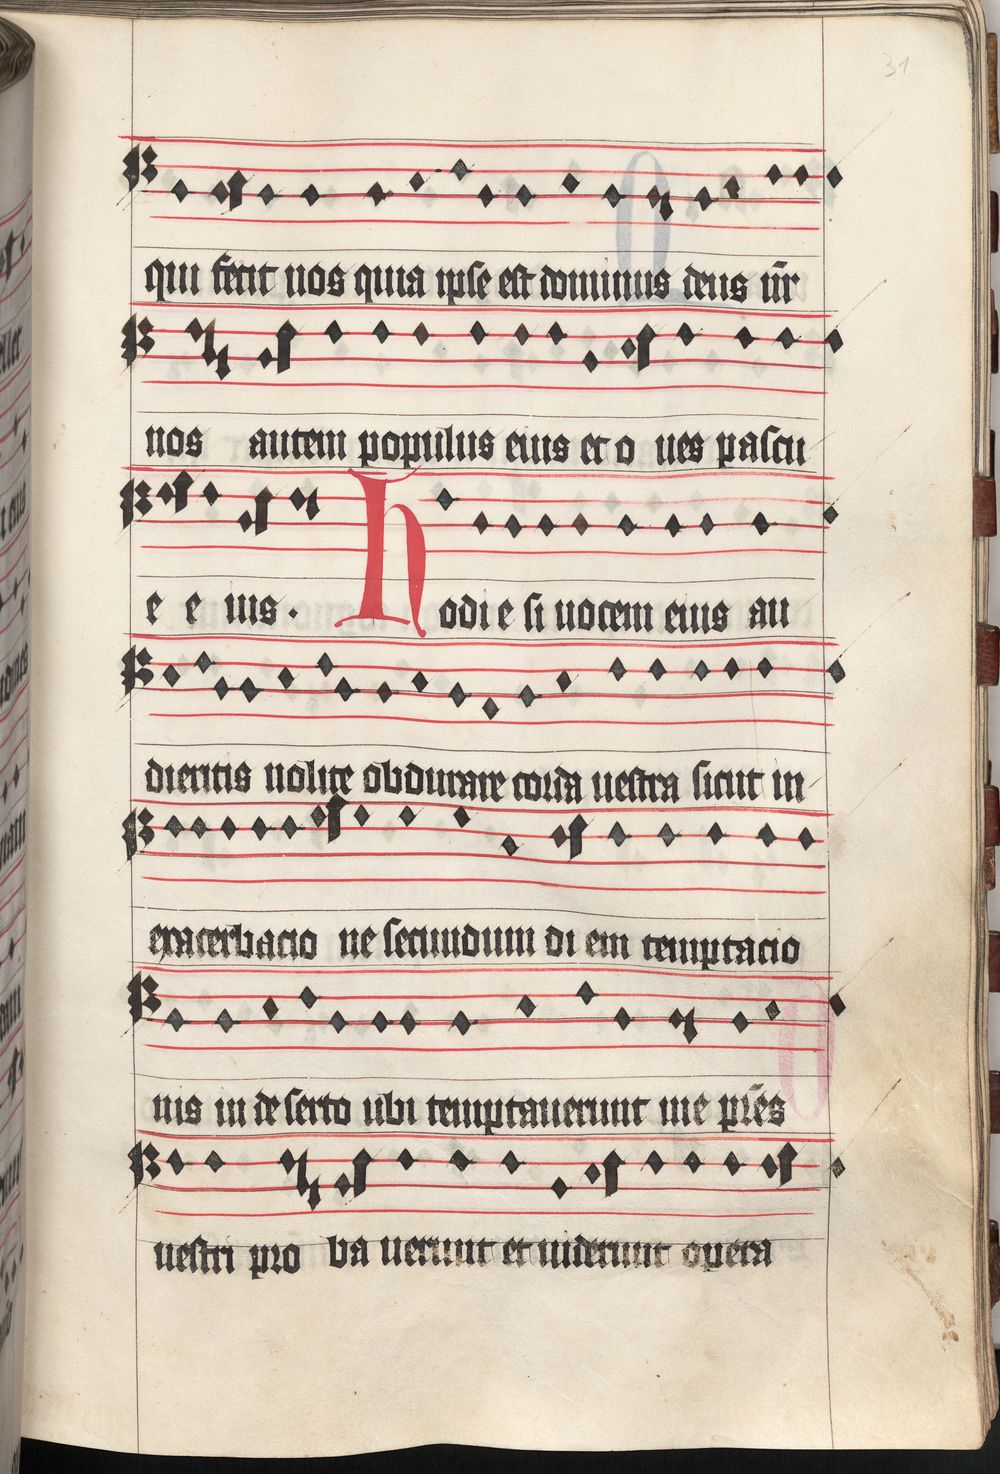 31
qui fecit nos quia ipse est dominus deus nr̄
nos autem populus eius et o ues pascu
e e ius.
Hodi e si uocem eius au
dieritis nolite obdurare corda uestra sicut in
exacerbacio ne secundum di em temptacio
nis in de serto ubi temptauerunt me pr̄es
uestri pro ba uerunt et uiderunt opera